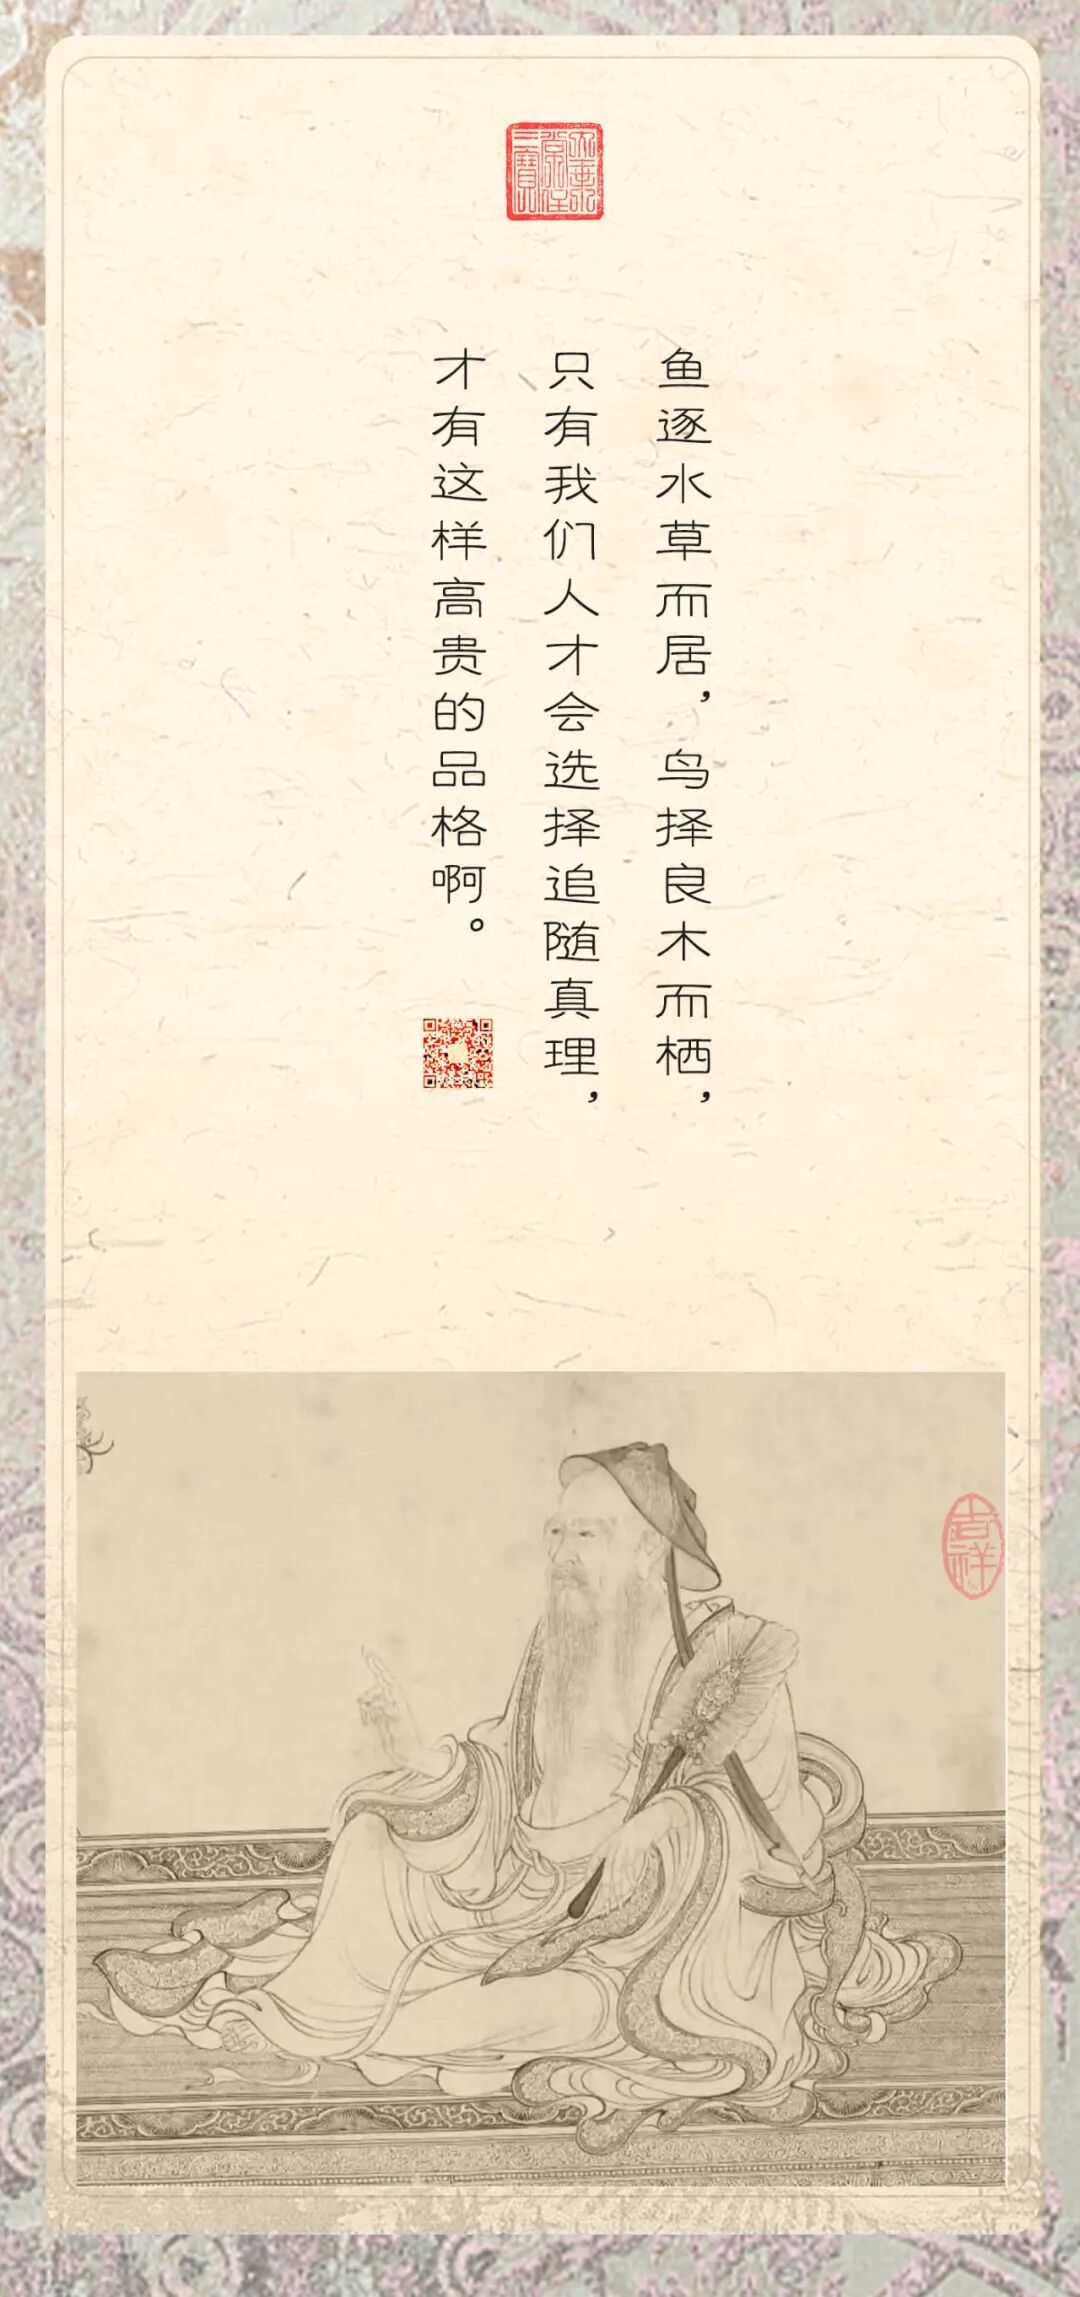 鱼逐水草而居，鸟择良木而栖，
只有我们人才会选择追随真理，
才有这样高贵的品格啊。
吉祥